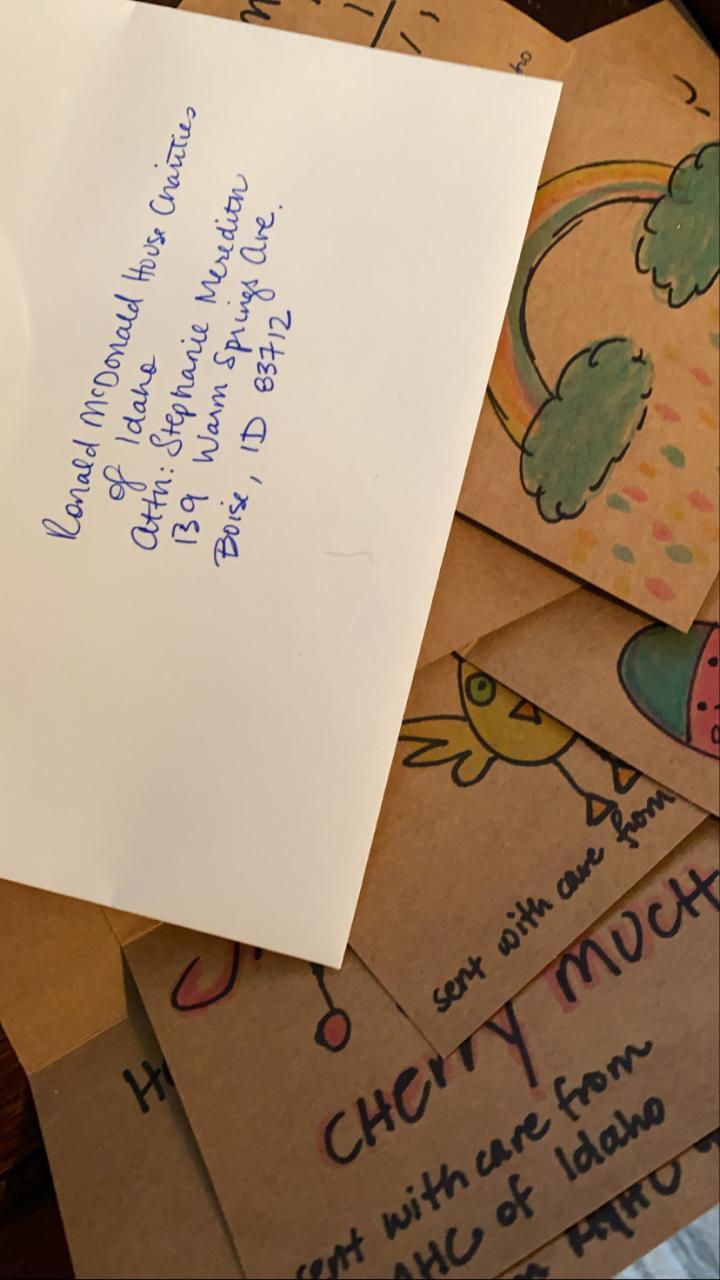 Ronald McDonald House Charities
of Idaho
Attn: Stephanie Meredith
139 Warm Springs Ave.
Boise, ID 83712
sent with care from
CHERRY MUCH
sent with care from
of Idaho